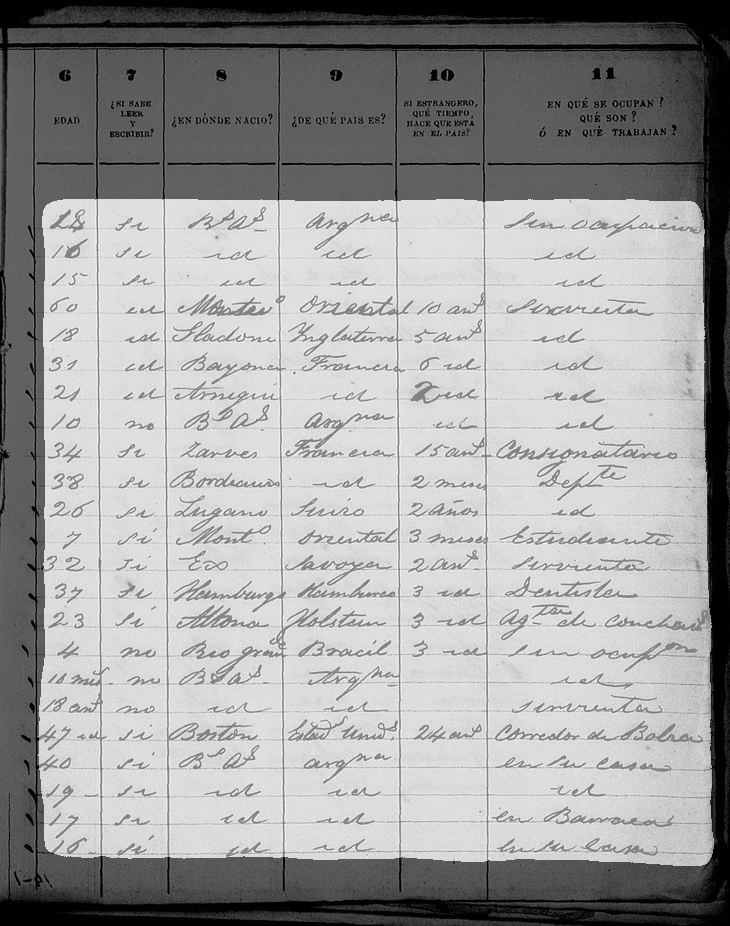 6 7 8 9 10 11
EDAD ¿SI SABE LEER Y ESCRIBIR? ¿EN DÓNDE NACIO? ¿DE QUÉ PAIS ES? SI ESTRANGERO, QUÉ TIEMPO, HACE QUE ESTÁ EN EL PAIS? EN QUÉ SE OCUPAN? QUÉ SON? Ó EN QUÉ TRABAJAN?
18 si Bs As Argna Sin ocupacion
16 si id id id
15 si id id id
60 id Montevo Oriental 10 ans Sirvienta
18 id Inglaterra 5 ans id
31 id Bayona Francia 6 id id
21 id id 2 id id
10 no Bs As Argna id id
34 si Francia 15 ans Consignatario
38 si Bordeaux id 2 meses Depte
26 si Lugano Suizo 2 años id
7 si Monto Oriental 3 meses Estudiante
32 si Ex Savoya 2 ans Sirvienta
37 si Hamburgo Hamburgo 3 id Dentista
23 si Altona Holstein 3 id de
4 no Rio Bracil 3 id Sin ocupon
10 mes no Bs As Argna id
18 ans no id id sirvienta
47 id si Boston Estads Unids 24 ans Corredor de Bolsa
40 si Bs As argna en su casa
19 si id id id
17 si id id en Barraca
16 si id id en su casa